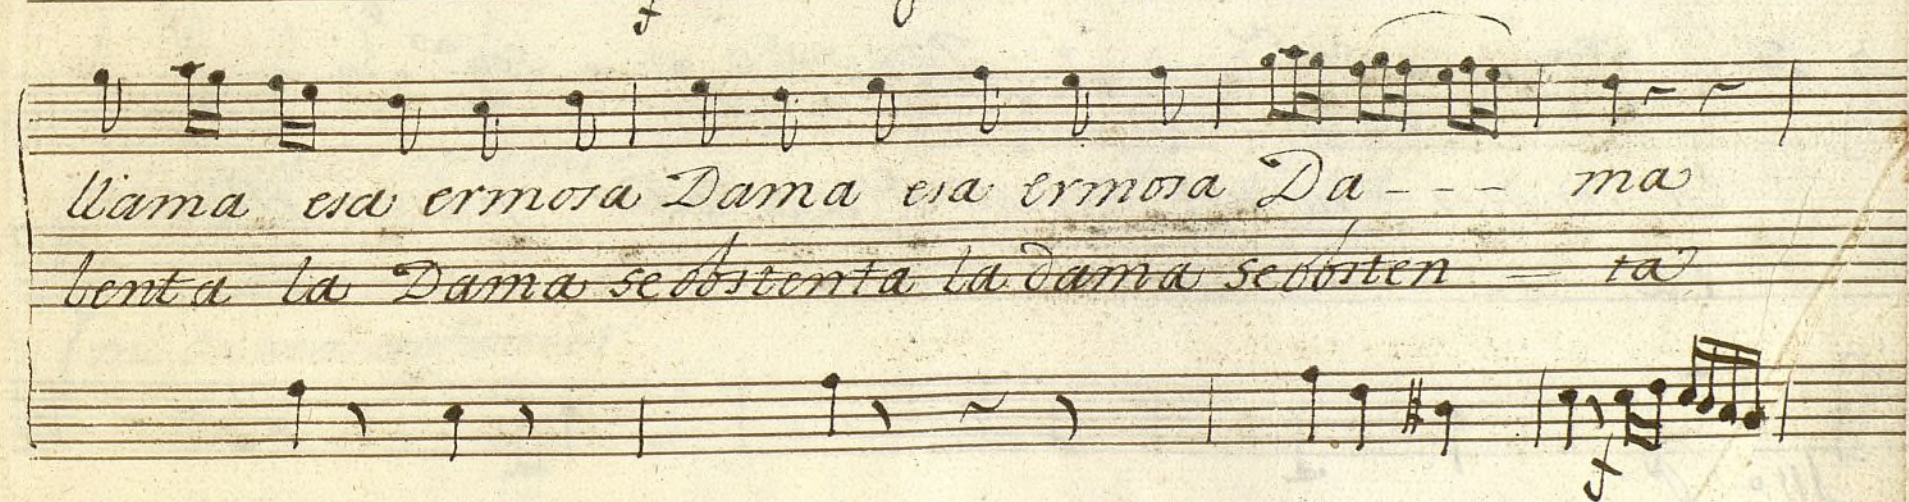 f
llama esa ermosa Dama esa ermosa Da - - - ma
lenta la Dama se obstenta la dama se obsten - ta
f